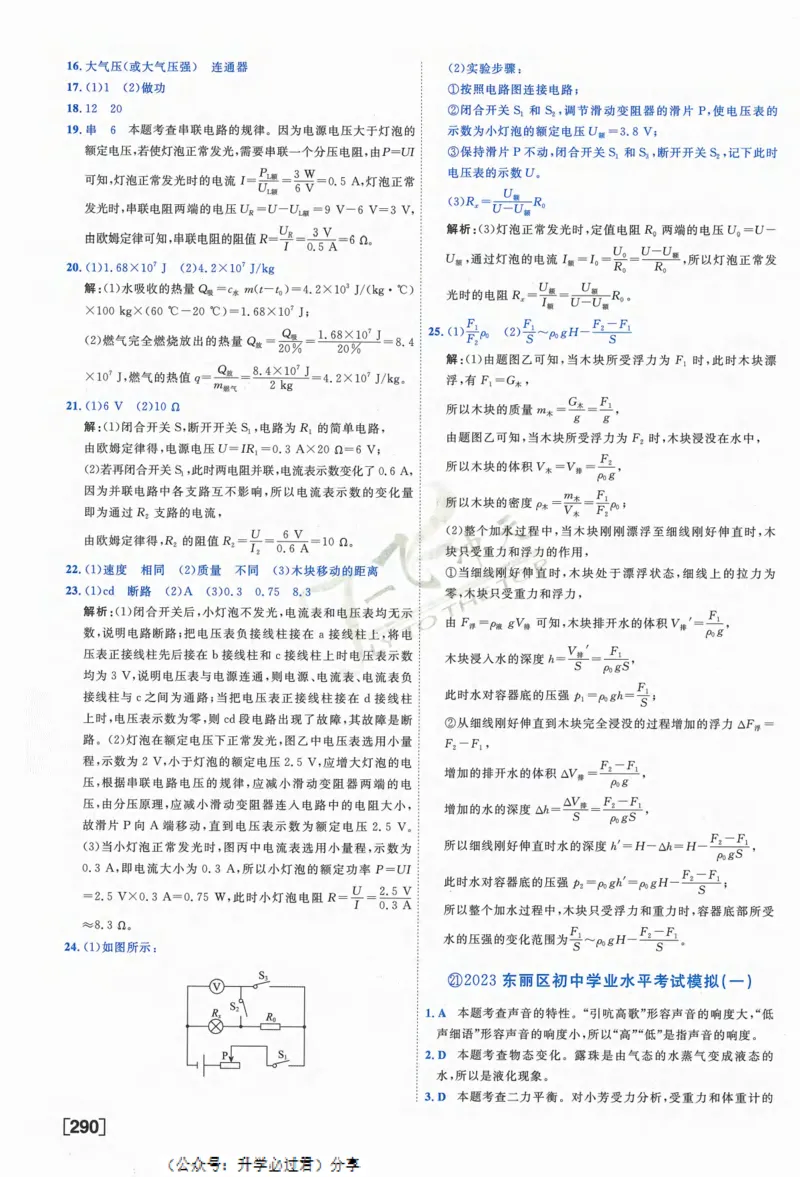 16. 大气压(或大气压强)　连通器
17. (1)1　(2)做功
18. 12　20
19. 串　6　本题考查串联电路的规律。因为电源电压大于灯泡的
额定电压,若使灯泡正常发光,需要串联一个分压电阻,由P=UI
可知,灯泡正常发光时的电流 I=P_L额/U_L额=3 W/6 V=0.5 A,灯泡正常
发光时,串联电阻两端的电压 U_R=U−U_L额=9 V−6 V=3 V,
由欧姆定律可知,串联电阻的阻值 R=U_R/I=3 V/0.5 A=6 Ω。
20. (1)1.68×10⁷ J　(2)4.2×10⁷ J/kg
解:(1)水吸收的热量 Q吸=c水 m(t−t₀)=4.2×10³ J/(kg·℃)
×100 kg×(60 ℃−20 ℃)=1.68×10⁷ J;
(2)燃气完全燃烧放出的热量 Q放=Q吸/20%=1.68×10⁷ J/20%=8.4
×10⁷ J,燃气的热值 q=Q放/m燃气=8.4×10⁷ J/2 kg=4.2×10⁷ J/kg。
21. (1)6 V　(2)10 Ω
解:(1)闭合开关 S,断开开关 S₁,电路为 R₁ 的简单电路,
由欧姆定律得,电源电压 U=IR₁=0.3 A×20 Ω=6 V;
(2)若再闭合开关 S₁,此时两电阻并联,电流表示数变化了 0.6 A,
因为并联电路中各支路互不影响,所以电流表示数的变化量
即为通过 R₂ 支路的电流,
由欧姆定律得,R₂ 的阻值 R₂=U/I₂=6 V/0.6 A=10 Ω。
22. (1)速度　相同　(2)质量　不同　(3)木块移动的距离
23. (1)cd　断路　(2)A　(3)0.3　0.75　8.3
解析:(1)闭合开关后,小灯泡不发光,电流表和电压表均无示
数,说明电路断路;把电压表负接线柱接在 a 接线柱上,将电
压表正接线柱先后接在 b 接线柱和 c 接线柱上时电压表示数
均为 3 V,说明电压表与电源连通,则电源、电流表、电流表负
接线柱与 c 之间为通路;当把电压表正接线柱接在 d 接线柱
上时,电压表示数为零,则 cd 段电路出现了故障,其故障是断
路。(2)灯泡在额定电压下正常发光,图乙中电压表选用小量
程,示数为 2 V,小于灯泡的额定电压 2.5 V,应增大灯泡的电
压,根据串联电路电压的规律,应减小滑动变阻器两端的电
压,由分压原理,应减小滑动变阻器连入电路中的电阻大小,
故滑片 P 向 A 端移动,直到电压表示数为额定电压 2.5 V。
(3)当小灯泡正常发光时,图丙中电流表选用小量程,示数为
0.3 A,即电流大小为 0.3 A,所以小灯泡的额定功率 P=UI
=2.5 V×0.3 A=0.75 W,此时小灯泡电阻 R=U/I=2.5 V/0.3 A
≈8.3 Ω。
24. (1)如图所示:
V
S₃
S₂
Rₓ
R₀
P
S₁
[290]
(2)实验步骤:
①按照电路图连接电路;
②闭合开关 S₁ 和 S₂,调节滑动变阻器的滑片 P,使电压表的
示数为小灯泡的额定电压 U额=3.8 V;
③保持滑片 P 不动,闭合开关 S₁ 和 S₃,断开开关 S₂,记下此时
电压表的示数 U。
(3)Rₓ=U额/(U−U额)R₀
解析:(3)灯泡正常发光时,定值电阻 R₀ 两端的电压 U₀=U−
U额,通过灯泡的电流 I额=I₀=U₀/R₀=(U−U额)/R₀,所以灯泡正常发
光时的电阻 Rₓ=U额/I额=U额/(U−U额)R₀。
25. (1)F₁/F₂ρ₀　(2)F₁/S~ρ₀gH−(F₂−F₁)/S
解:(1)由题图乙可知,当木块所受浮力为 F₁ 时,此时木块漂
浮,有 F₁=G木,
所以木块的质量 m木=G木/g=F₁/g,
由题图乙可知,当木块所受浮力为 F₂ 时,木块浸没在水中,
所以木块的体积 V木=V排=F₂/ρ₀g,
所以木块的密度 ρ木=m木/V木=F₁/F₂ρ₀;
(2)整个加水过程中,当木块刚刚漂浮至细线刚好伸直时,木
块只受重力和浮力的作用,
①当细线刚好伸直时,木块处于漂浮状态,细线上的拉力为
零,木块只受重力和浮力,
由 F浮=ρ液 gV排 可知,木块排开水的体积 V排′=F₁/ρ₀g,
木块浸入水的深度 h=V排′/S=F₁/ρ₀gS,
此时水对容器底的压强 p₁=ρ₀gh=F₁/S;
②从细线刚好伸直到木块完全浸没的过程增加的浮力 ΔF浮=
F₂−F₁,
增加的排开水的体积 ΔV排=(F₂−F₁)/ρ₀g,
增加的水的深度 Δh=ΔV排/S=(F₂−F₁)/ρ₀gS,
所以细线刚好伸直时水的深度 h′=H−Δh=H−(F₂−F₁)/ρ₀gS,
此时水对容器底的压强 p₂=ρ₀gh′=ρ₀gH−(F₂−F₁)/S;
所以整个加水过程中,木块只受浮力和重力时,容器底部所受
水的压强的变化范围为F₁/S~ρ₀gH−(F₂−F₁)/S。
㉑2023 东丽区初中学业水平考试模拟(一)
1. A　本题考查声音的特性。“引吭高歌”形容声音的响度大,“低
声细语”形容声音的响度小,所以“高”“低”是指声音的响度。
2. D　本题考查物态变化。露珠是由气态的水蒸气变成液态的
水,所以是液化现象。
3. D　本题考查二力平衡。对小芳受力分析,受重力和体重计的
(公众号：升学必过君)分享